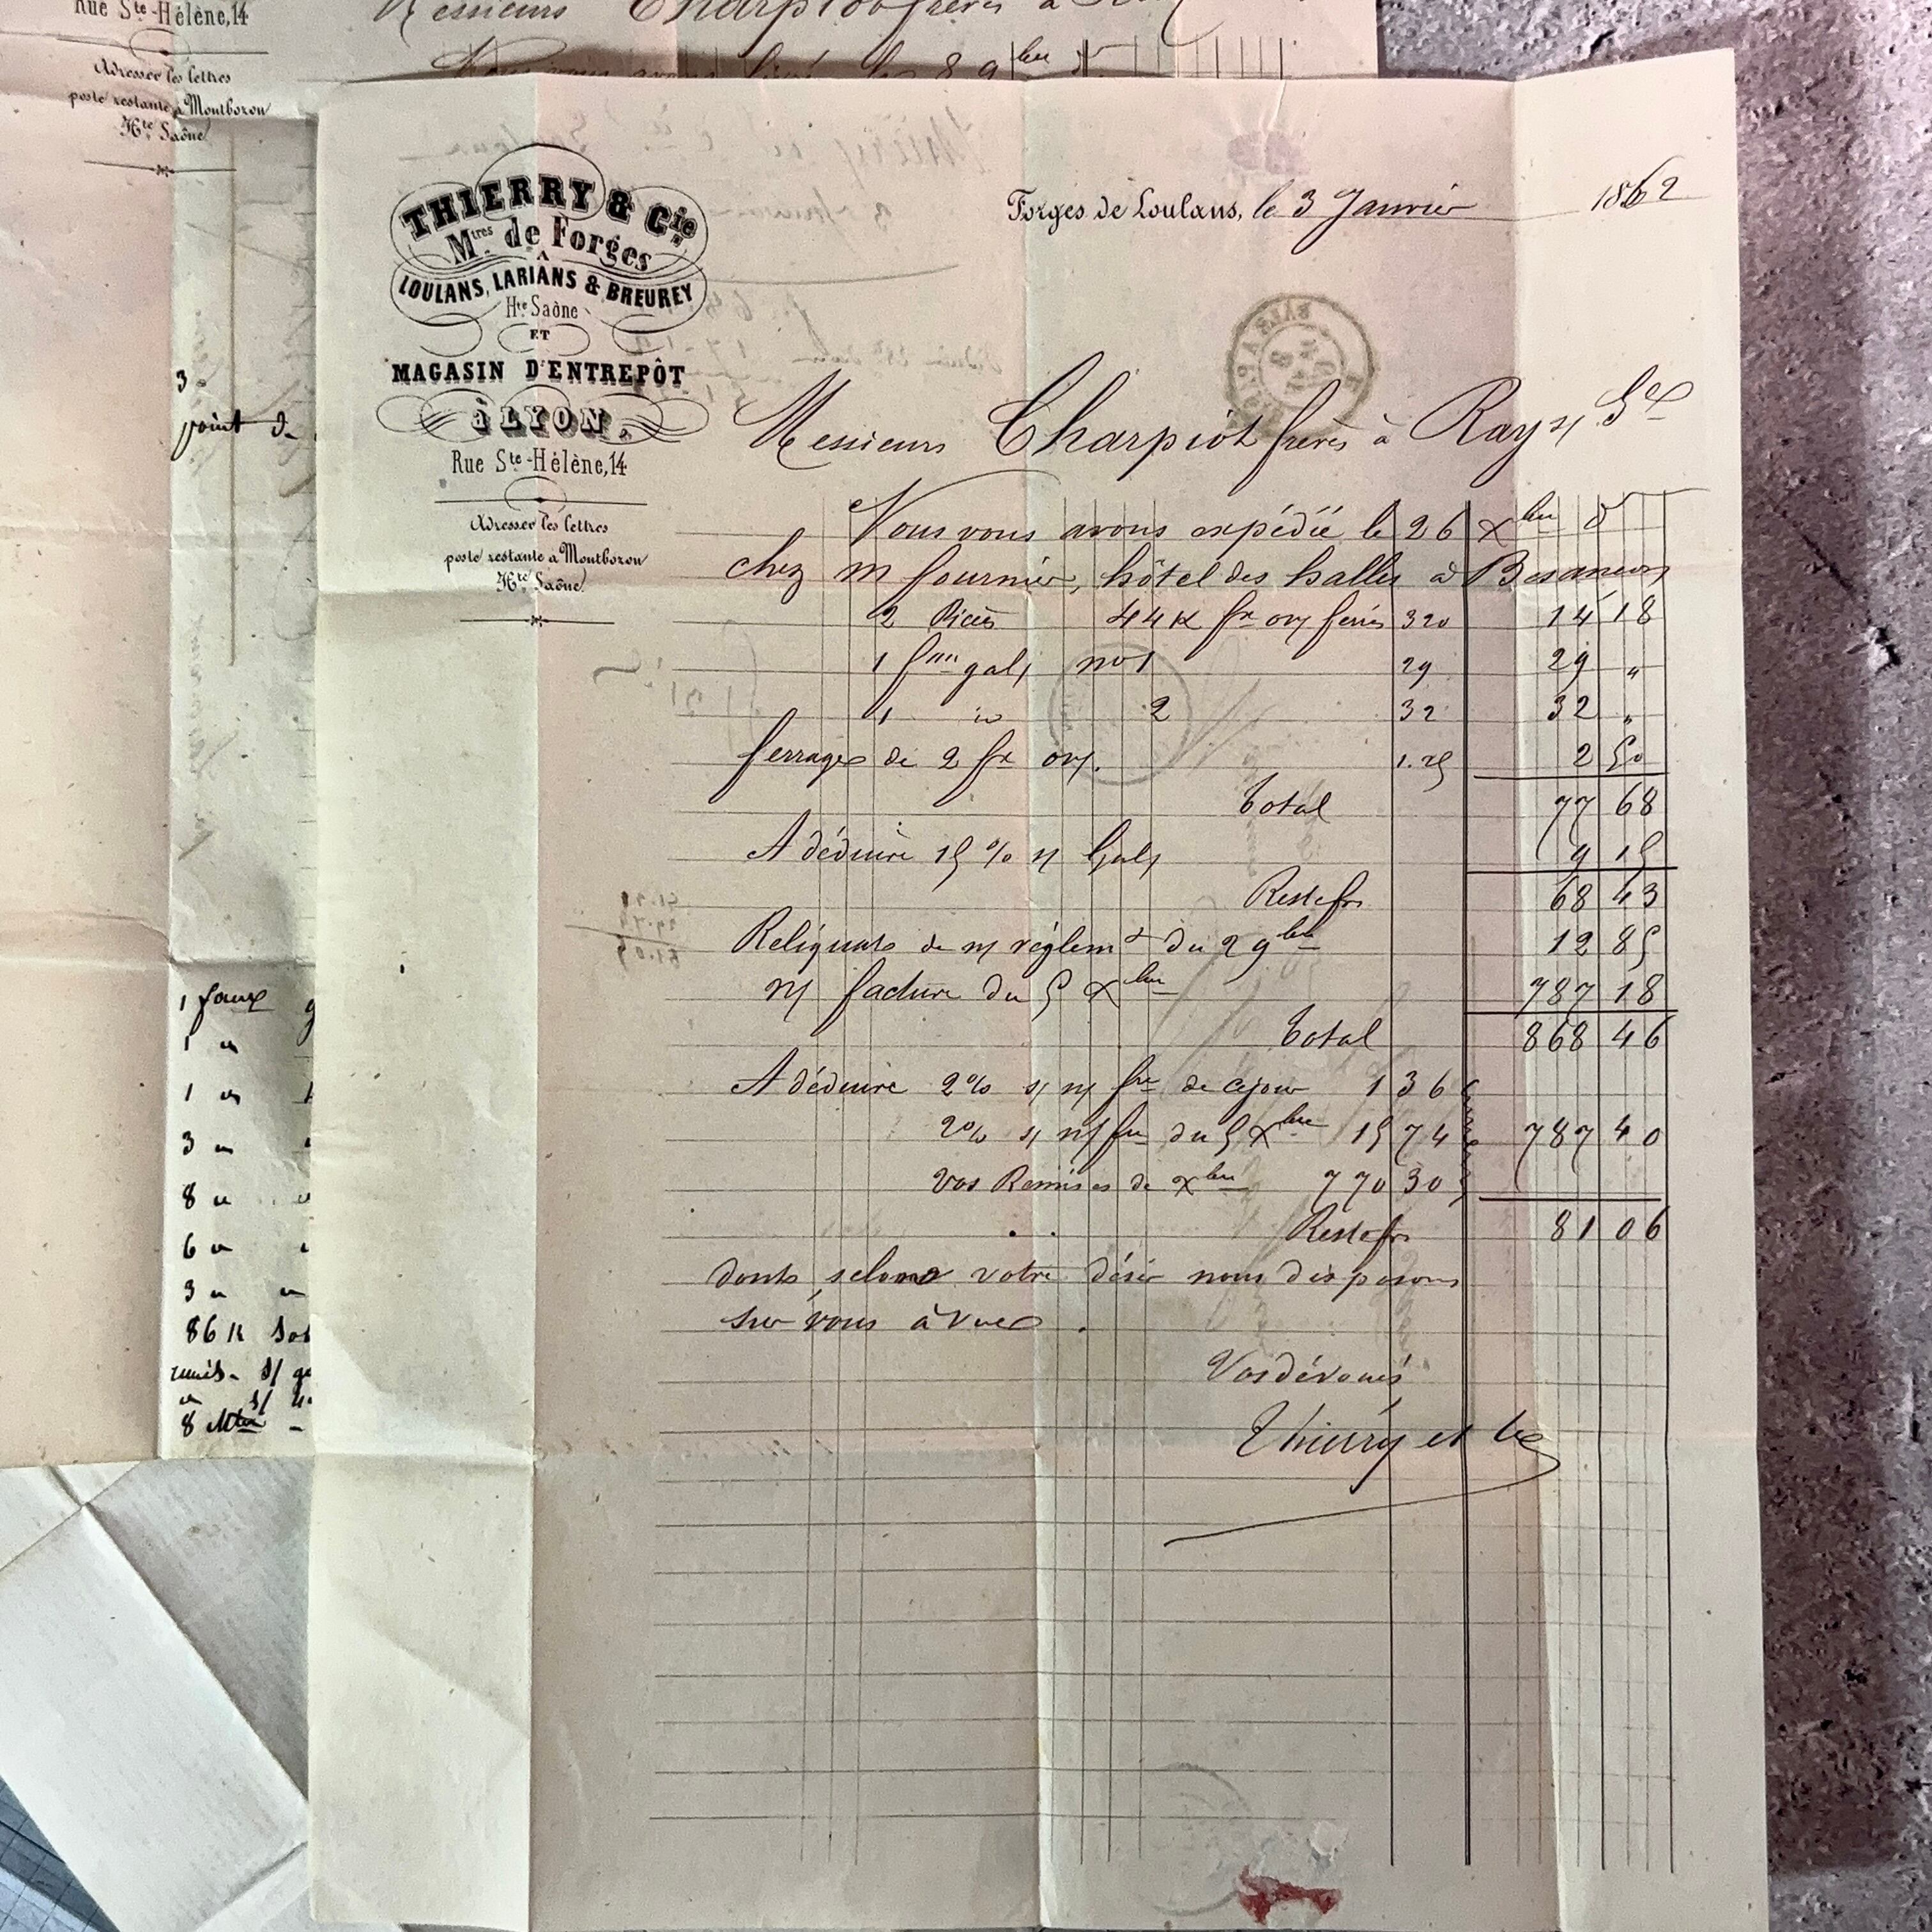 Rue Ste-Hélène, 14
Adresser les lettres
poste restante à Montbozon
Hte Saône
Messieurs Charpiot frères à
3
point d
1 faux
1 "
1 "
3 "
8 "
6 "
3 "
86 K
8
THIERRY & Cie
Mtres de Forges
À
LOULANS, LARIANS & BREUREY
Hte Saône
ET
MAGASIN D'ENTREPÔT
à LYON,
Rue Ste-Hélène, 14
Adresser les lettres
poste restante à Montbozon
Hte Saône
Forges de Loulans, le 3 Janvier 1862
Messieurs Charpiot frères à Ray s/ Sne
Nous vous avons expédié le 26 Xbre dr
chez m fournier, hôtel des halles à Besancon
2 Pièces 44 K fx ory ferrés 320 14 18
1 galy no 1 29 29 "
1 id 2 32 32 "
ferrages de 2 fx ory. 1.25 2 50
Total 77 68
A déduire 15 % s/ Galy 9 15
Reste frs 68 43
Reliquats de n/ règlemt du 2 9bre 12 85
n/ facture du 5 Xbre 787 18
Total 868 46
A déduire 2% s/ n/ fre de ce jour 1 36
2% s/ n/ fre du 5 Xbre 15 74 787 40
Vos Remises de Xbre 770 30
Reste frs 81 06
dont selon votre désir nous disposons
sur vous à vue.
Vos dévoués
Thierry et Cie